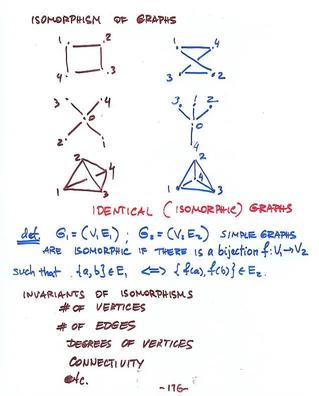 ISOMORPHISM OF GRAPHS
1 2 1 4
4 3 3 2
3 4 3 1 2
0 0
2 1 4
2 2
4 4
1 3 1 3
IDENTICAL (ISOMORPHIC) GRAPHS
def. G₁ = (V₁E₁) ; G₂ = (V₂E₂) SIMPLE GRAPHS
ARE ISOMORPHIC IF THERE IS a bijection f: V₁→V₂
such that {a,b}∈E₁ <=> {f(a), f(b)}∈E₂.
INVARIANTS OF ISOMORPHISMS
# OF VERTICES
# OF EDGES
DEGREES OF VERTICES
CONNECTIVITY
etc.
-176-